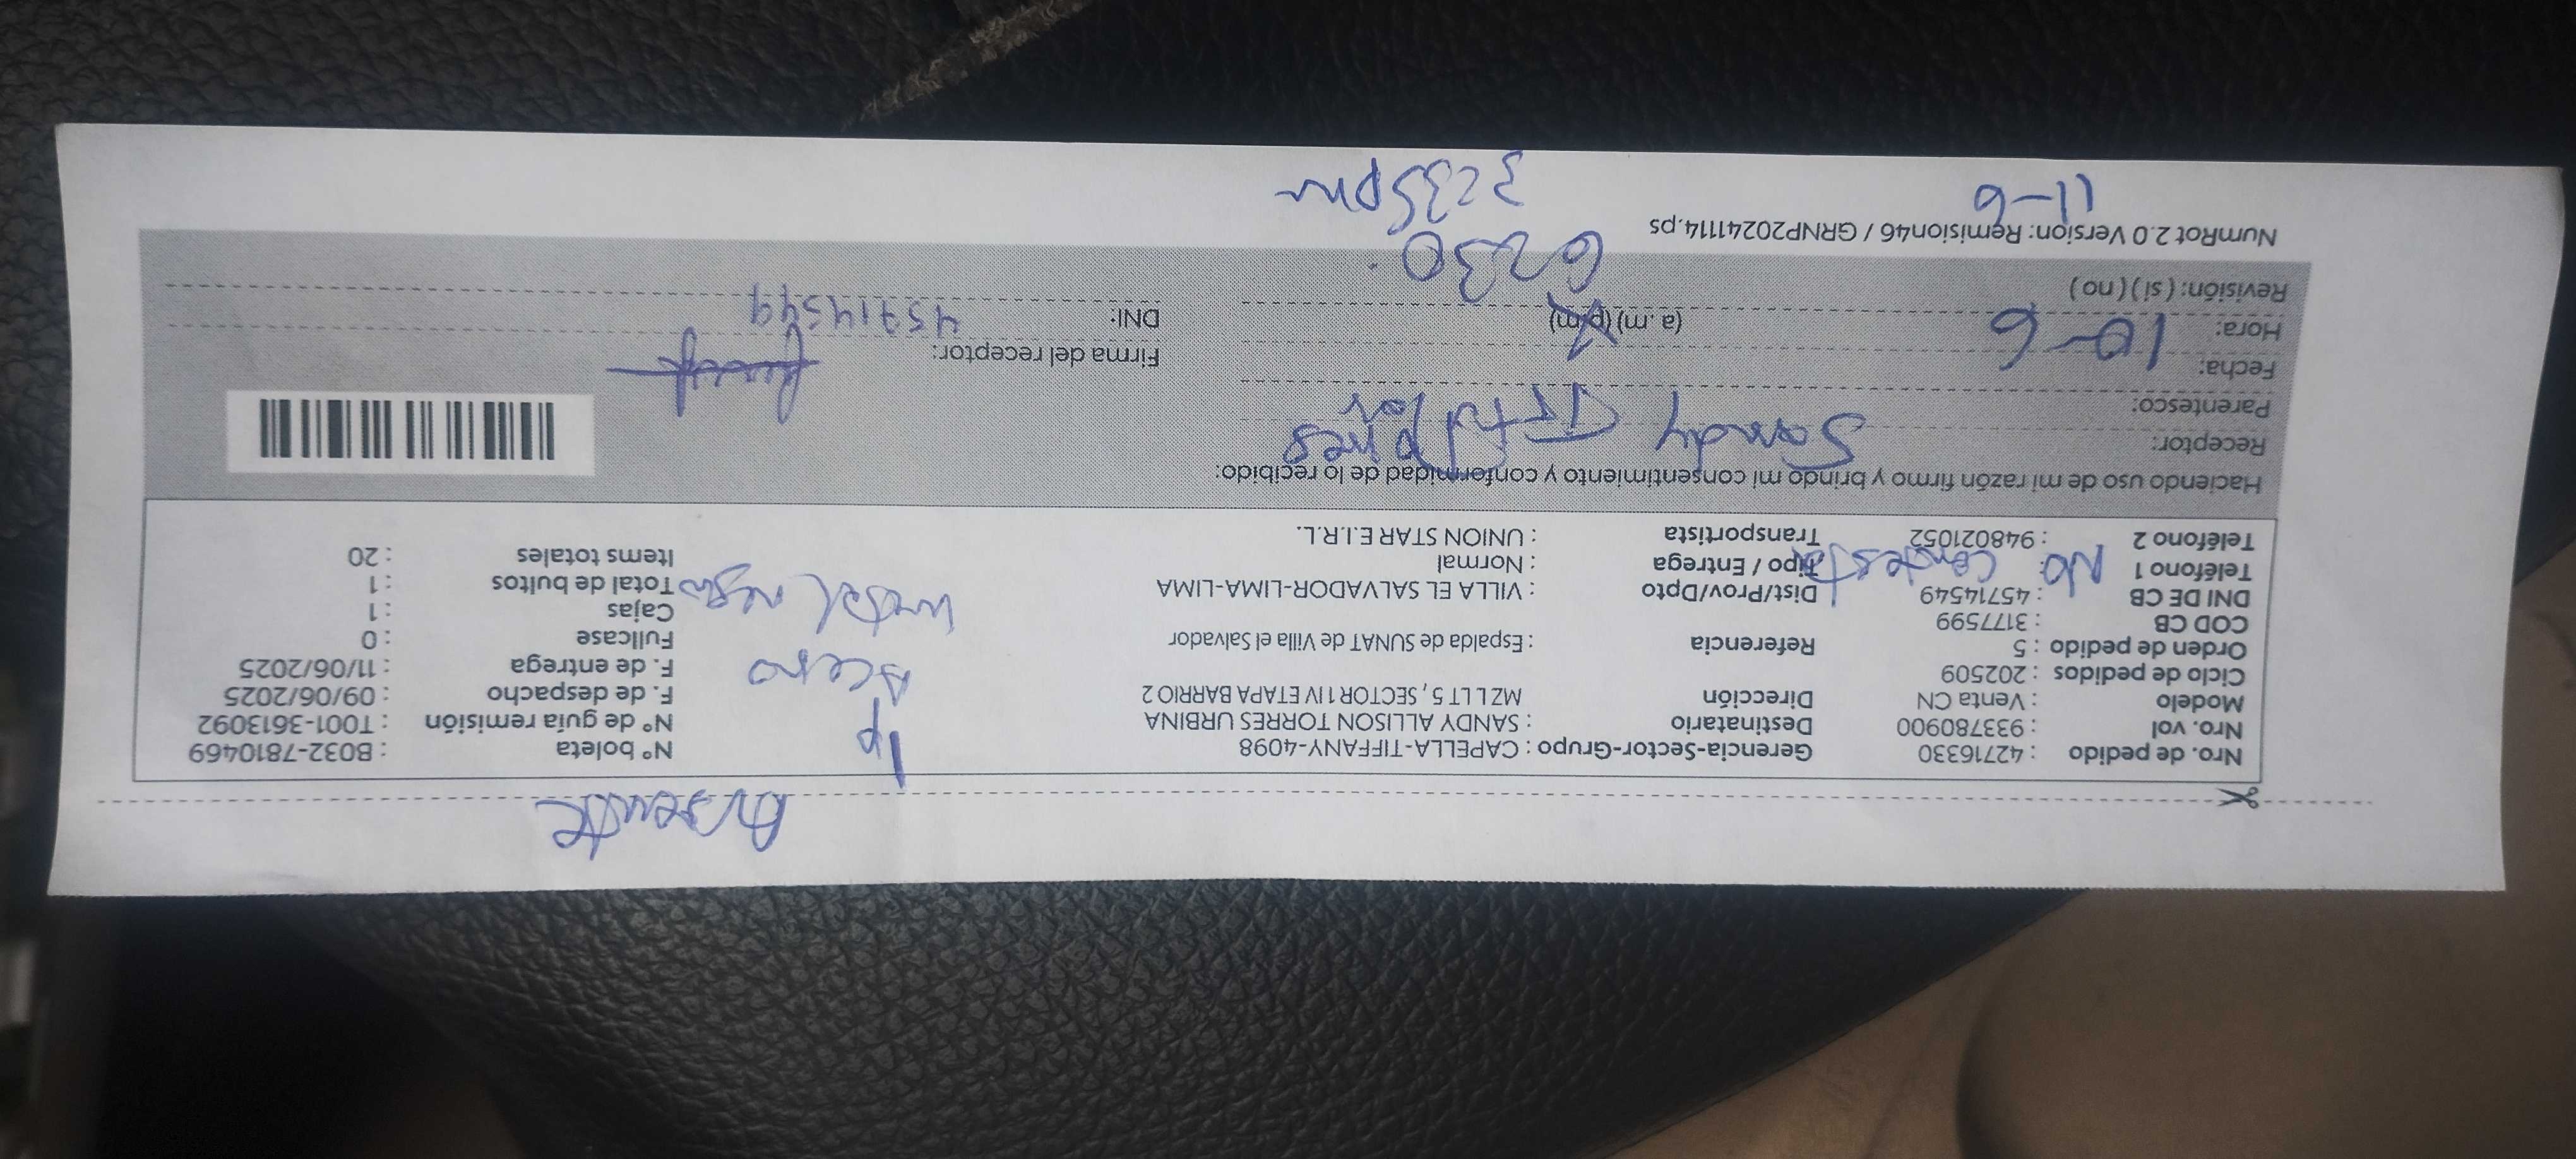 Ausente
Nro. de pedido : 42716330 Gerencia-Sector-Grupo : CAPELLA-TIFFANY-4098 1p N° boleta : B032-7810469
Nro. vol : 933780900 Destinatario : SANDY ALLISON TORRES URBINA N° de guía remisión : T001-3613092
Modelo : Venta CN Dirección MZ LL T 5 , SECTOR 1 IV ETAPA BARRIO 2 F. de despacho : 09/06/2025
Ciclo de pedidos : 202509 Acero F. de entrega : 11/06/2025
Orden de pedido : 5 Referencia : Espalda de SUNAT de Villa el Salvador Fullcase : 0
COD CB : 3177599 Cajas : 1
DNI DE CB : 45714549 Dist/Prov/Dpto : VILLA EL SALVADOR-LIMA-LIMA metal negro Total de bultos : 1
Teléfono 1 : No contesta Tipo / Entrega : Normal Items totales : 20
Teléfono 2 : 948021052 Transportista : UNION STAR E.I.R.L.
Haciendo uso de mi razón firmo y brindo mi consentimiento y conformidad de lo recibido:
Receptor: Sandy
Parentesco:
Fecha: 10-6 Firma del receptor:
Hora: (a .m) (p/m) DNI: 45714549
Revisión: ( si ) ( no )
6:30
NumRot 2.0 Version: Remision46 / GRNP20241114.ps
11-6 3:35pm